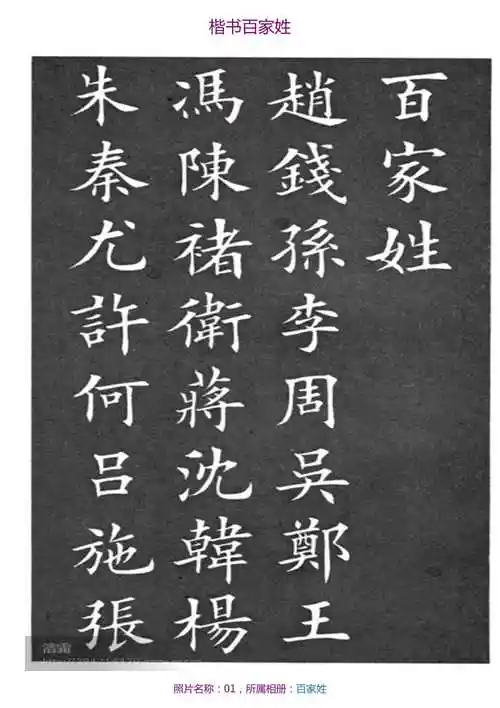 楷书百家姓
百家姓
趙錢孫李周吳鄭王
馮陳褚衛蔣沈韓楊
朱秦尤許何吕施張
浩霜
照片名称：01，所属相册：百家姓